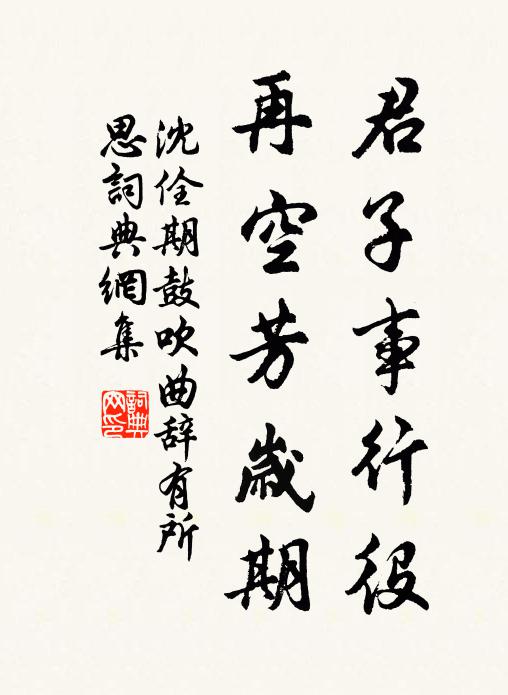 君子事行役
再空芳歲期
沈佺期鼓吹曲辞有所
思詞典網集
詞典網印